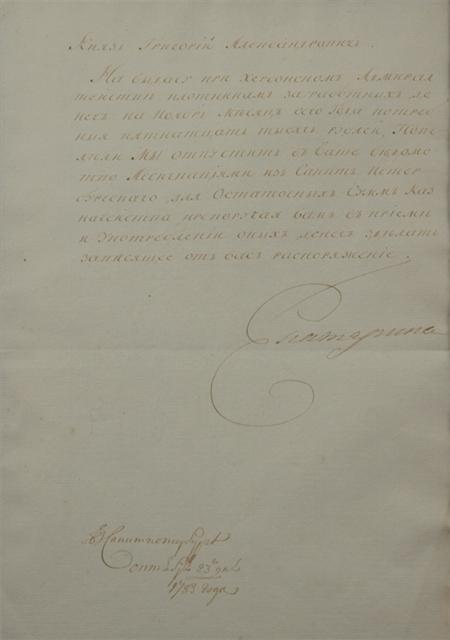 Князь Григорій Александровичь.
На выдачу при Херсонском Адмирал
тействи плотникамъ заработныхъ де
негъ на Ноябрь Месяцъ сего Года потреб
ныя пятнатцать тысячь рублей, Пове
лели Мы отпустить въ Ваше ведомс
тво Ассигнациями изъ Санкт Петер
бургскаго для Остаточныхъ Суммъ Каз
начейства препоручая вамъ въ приеми
и Употреблении оныхъ денегъ зделать
зависящее отъ васъ распоряжение.
Екатерина
Въ Санктпетербурге
Сентября 23го дня
1783 года